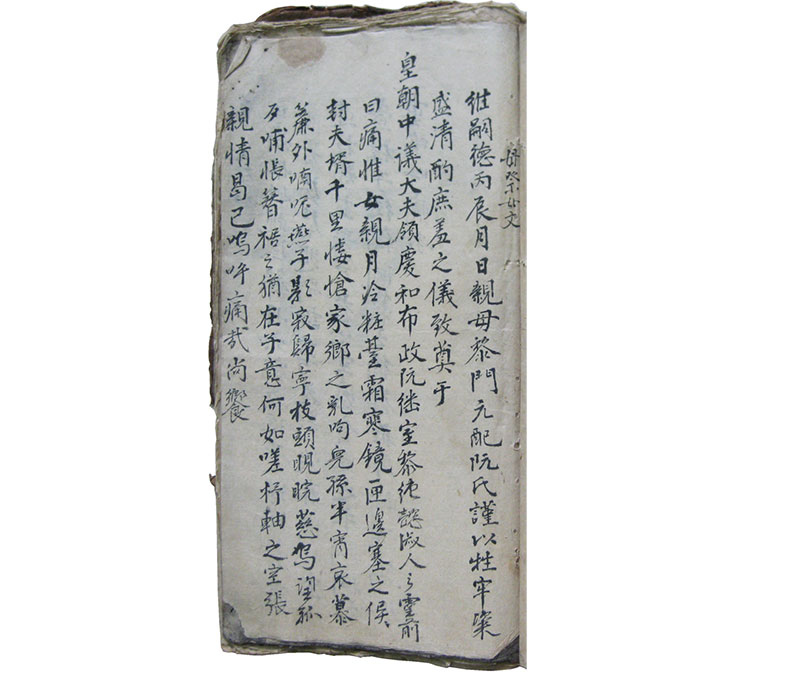 母祭女文
維嗣德丙辰月日親母黎門元配阮氏謹以牲牢粢
盛清酌庶羞之儀致奠于
皇朝中議大夫領慶和布政阮継室黎純懿淑人之靈前
曰痛惟女親月冷粧臺霜寒鏡匣邊塞之侯
封夫壻千里悽愴家鄉之乳哺兒孫半宵哀慕
簾外喃呢燕子影寂歸寧枝頭睍睆慈烏望孤
反哺悵簪裾之猶在予意何如嗟杼軸之空張
親情曷已嗚呼痛哉尚饗